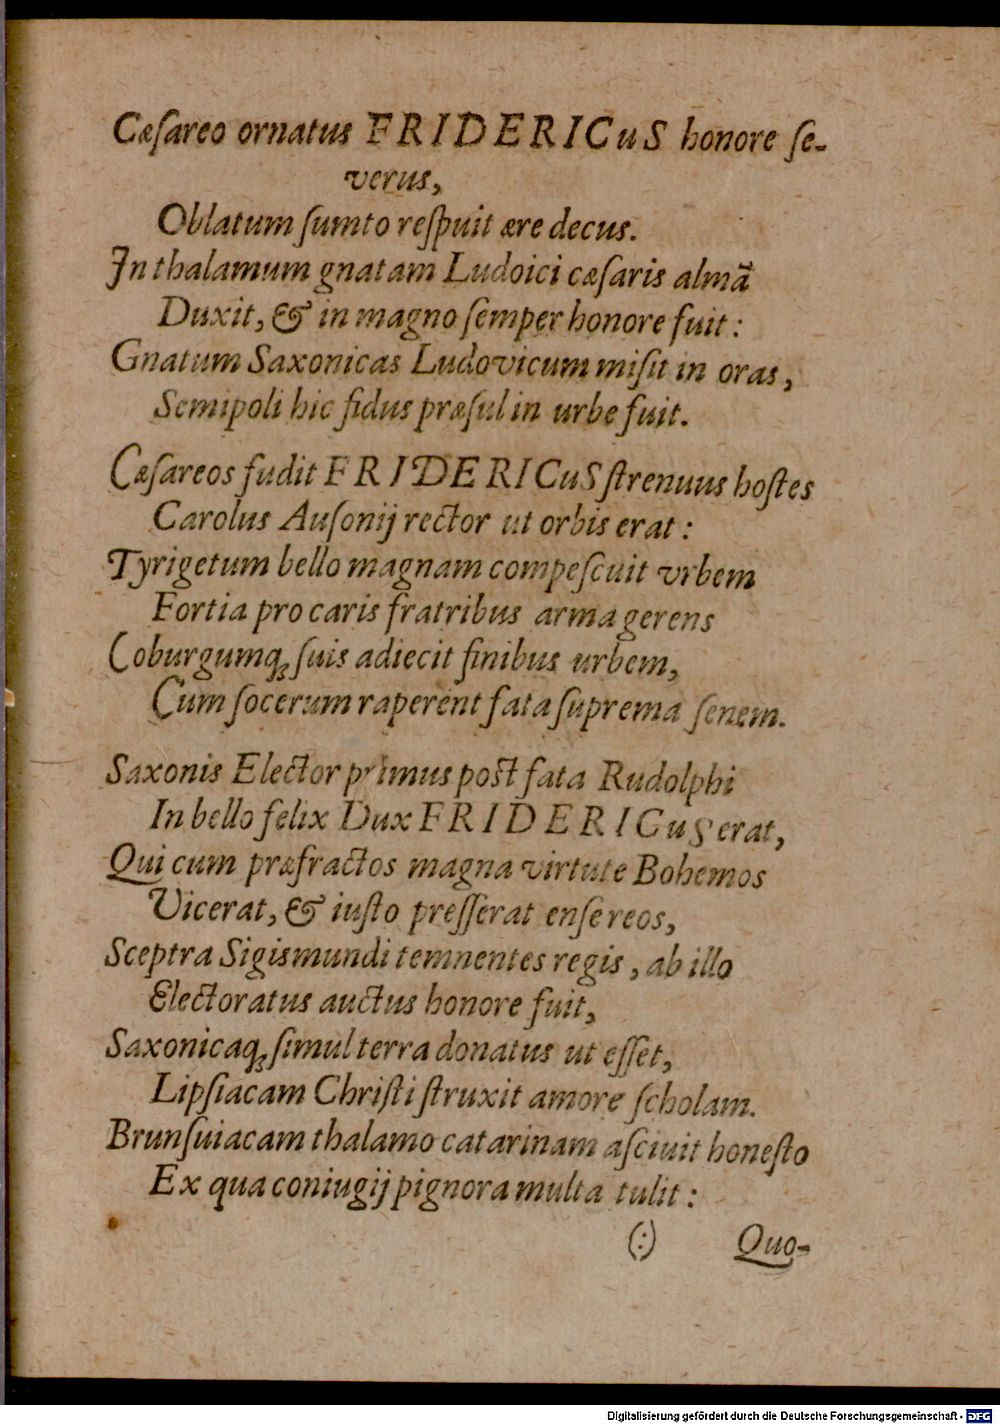 Cæſareo ornatus FRIDERICuS honore ſe-
verus,
Oblatum ſumto reſpuit ære decus.
In thalamum gnatam Ludoici cæſaris almā
Duxit, & in magno ſemper honore fuit:
Gnatum Saxonicas Ludovicum miſit in oras,
Semipoli hic fidus præſul in urbe fuit.
Cæſareos fudit FRIDERICuS ſtrenuus hoſtes
Carolus Auſonij rector ut orbis erat:
Tyrigetum bello magnam compeſcuit vrbem
Fortia pro caris fratribus arma gerens
Coburgumq́; ſuis adiecit finibus urbem,
Cum ſocerum raperent fata ſuprema ſenem.
Saxonis Elector primus poſt fata Rudolphi
In bello felix Dux FRIDERICuS erat,
Qui cum præfractos magna virtute Bohemos
Vicerat, & iuſto preſſerat enſe reos,
Sceptra Sigismundi temnentes regis, ab illo
Electoratus auctus honore fuit,
Saxonicaq́; ſimul terra donatus ut eſſet,
Lipſiacam Chriſti ſtruxit amore ſcholam.
Brunſuiacam thalamo catarinam aſciuit honeſto
Ex qua coniugij pignora multa tulit:
(:) Quo-
Digitalisierung gefördert durch die Deutsche Forschungsgemeinschaft - DFG